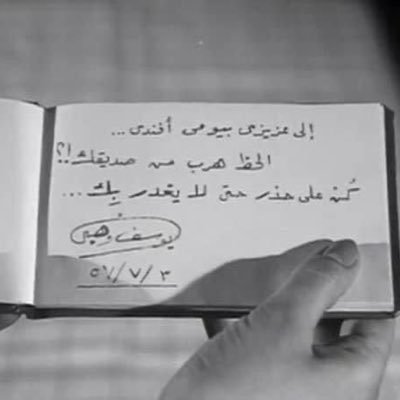 إلى عزيزى بيومى أفندى...
الحظ هرب من صديقك!؟
كُن على حذر حتى لا يغدر بِك...
يوسف وهبى
٥٧/٧/٣